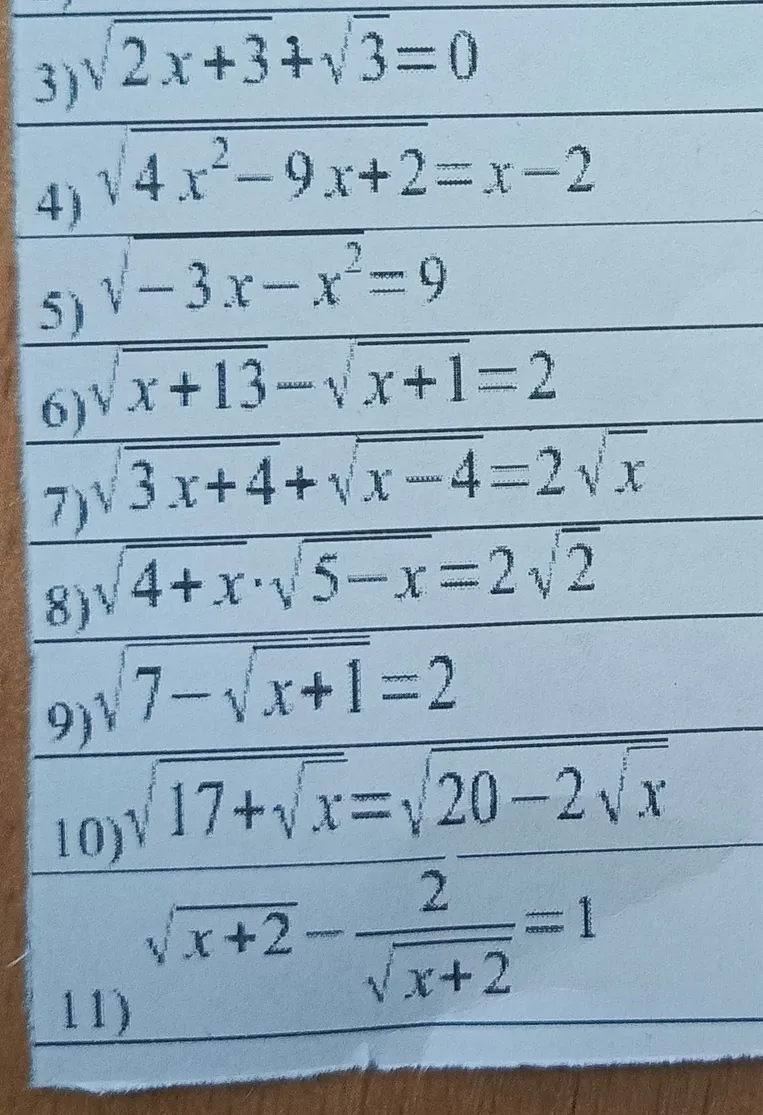 3) √(2x+3) + √3 = 0
4) √(4x² − 9x + 2) = x − 2
5) √(−3x − x²) = 9
6) √(x+13) − √(x+1) = 2
7) √(3x+4) + √(x−4) = 2√x
8) √(4+x) · √(5−x) = 2√2
9) √(7 − √(x+1)) = 2
10) √(17 + √x) = √(20 − 2√x)
11) √(x+2) − 2/√(x+2) = 1